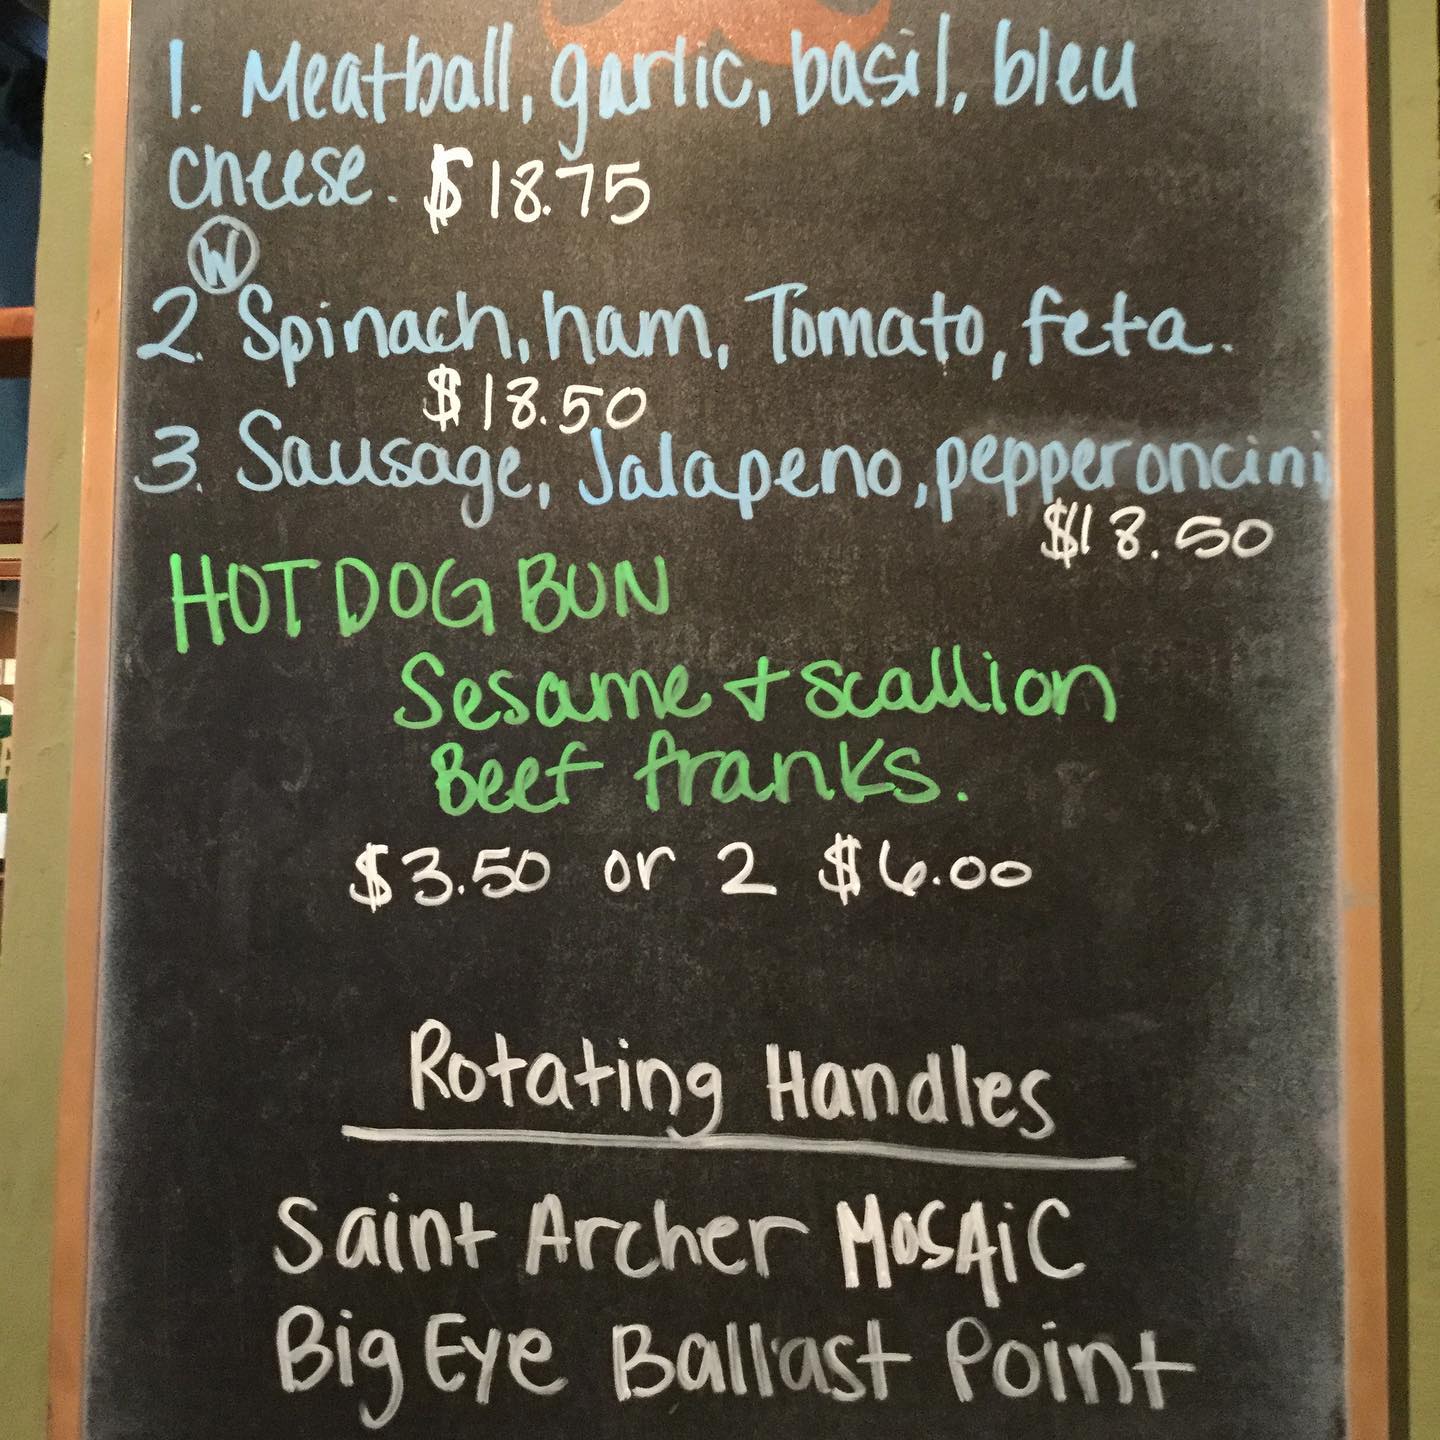 1. Meatball, garlic, basil, bleu
cheese. $18.75
W
2. Spinach, ham, Tomato, feta.
$18.50
3. Sausage, Jalapeno, pepperoncini
$18.50
HOT DOG BUN
Sesame + scallion
Beef franks.
$3.50 or 2 $6.00
Rotating Handles
Saint Archer MOSAiC
Big Eye Ballast Point